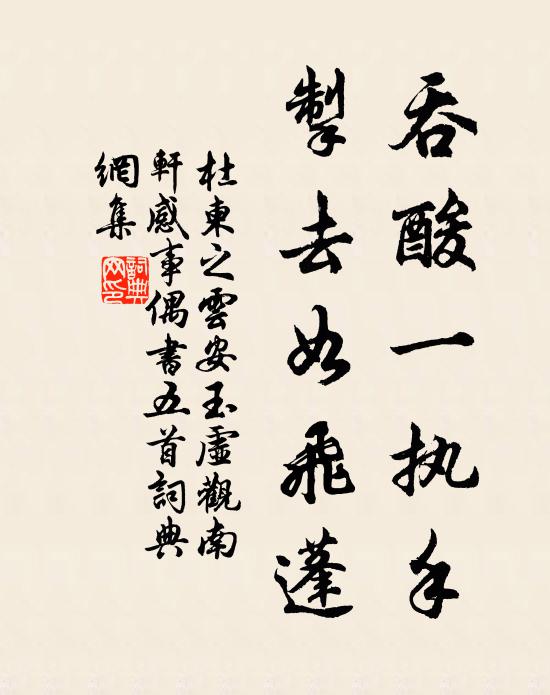 吞酸一执手
掣去如飛蓬
杜東之雲安玉虛觀南
軒感事偶書五首詞典
網集
詞典網印